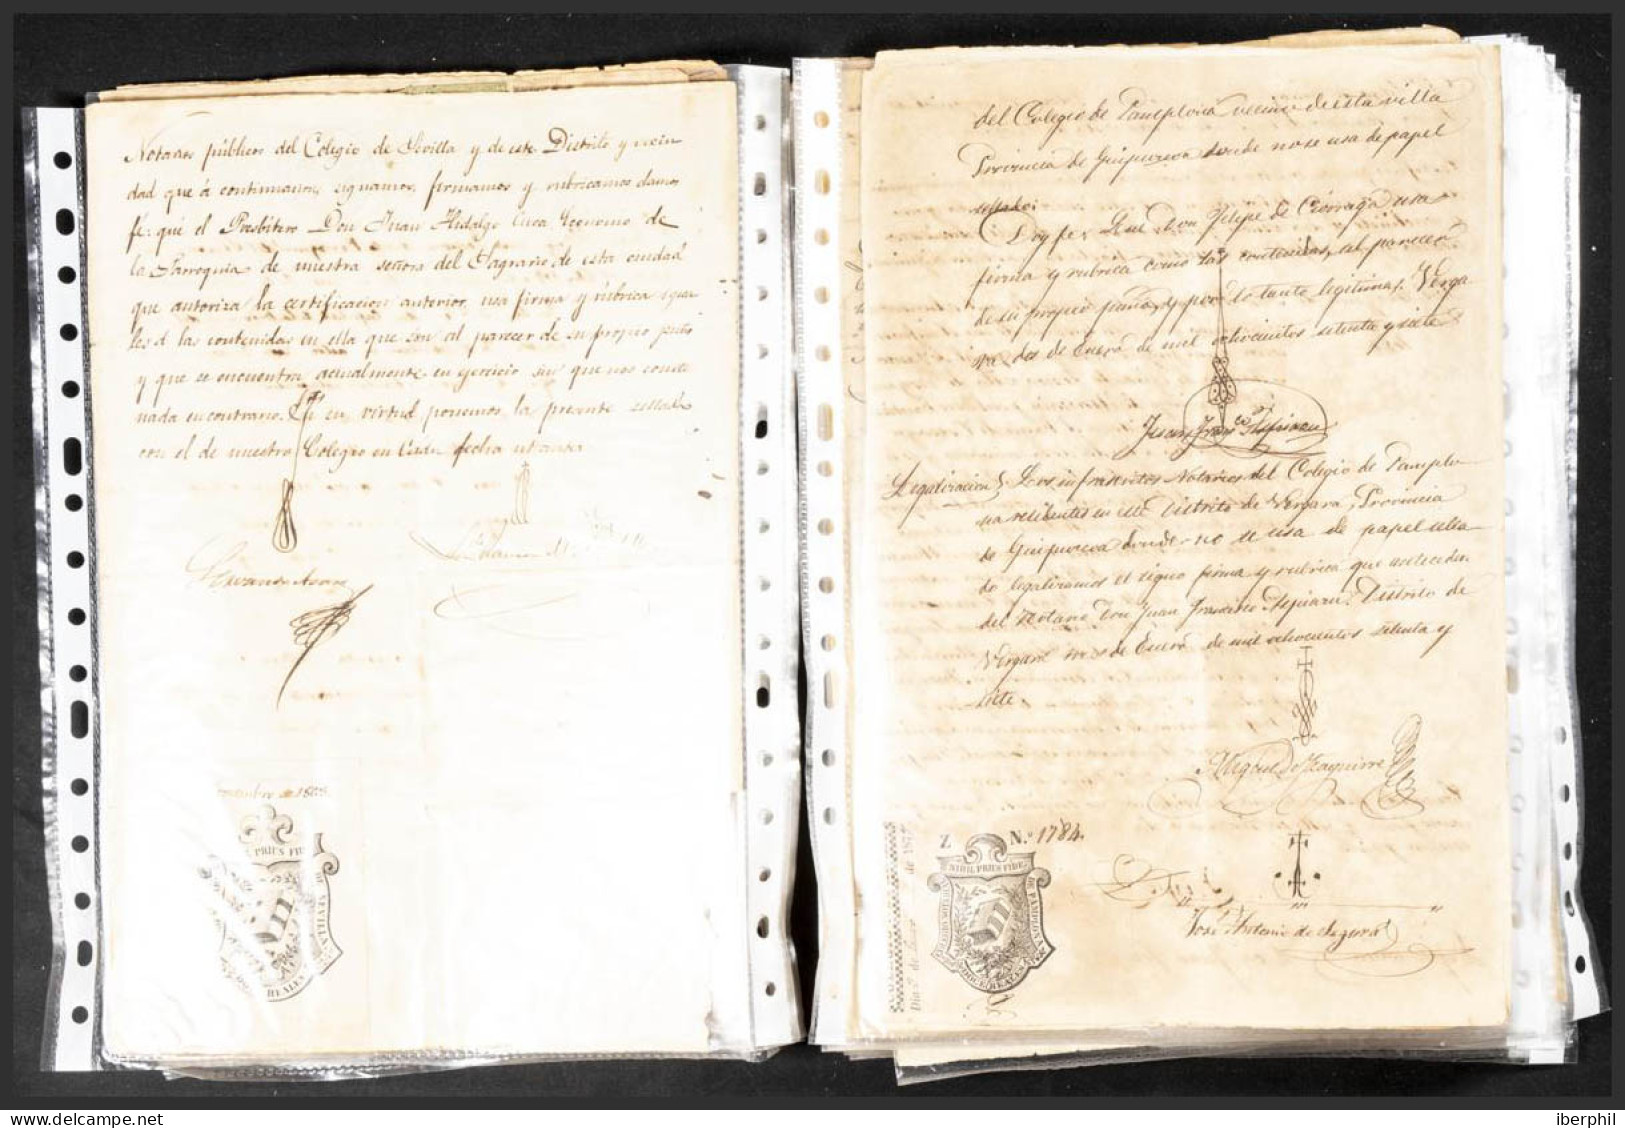 Notarios públicos del Colegio de Sevilla y de este Distrito y vecin
dad que á continuacion, signamos, firmamos y rubricamos damos
fé: que el Presbítero Don Juan Hidalgo Cura Ecónomo de
la Parroquia de nuestra señora del Sagrario de esta ciudad
que autoriza la certificacion anterior, usa firma y rúbrica igua
les á las contenidas en ella que son al parecer de su propio puño
y que se encuentra actualmente en ejercicio sin que nos conste
nada en contrario. Y en virtud ponemos la presente sellada
con el de nuestro Colegio en Cadiz fecha ut antea
de 1878.
PRIUS FIDE
SEVILLA
REALES
del Colegio de Pamplona vecino de esta villa
Provincia de Guipuzcoa donde no se usa de papel
sellado:
Doy fe, Que Don Felipe de Ciorraga usa
firma y rubrica como las contenidas, al parecer
de su propio puño, y por lo tanto legitimas. Verga
ra dos de Enero de mil ochocientos setenta y siete
Juan Franco
Legalizacion Los infrascritos Notarios del Colegio de Pamplo-
na residentes en este Distrito de Vergara, Provincia
de Guipuzcoa donde no se usa de papel sella-
do legalizamos el signo firma y rubrica que anteceden
del Notario Don Juan Francisco Aspiazu. Distrito de
Vergara dos de Enero de mil ochocientos setenta y
siete.
Miguel de Yzaguirre
Z N.º 1784.
NIHIL PRIUS FIDE
COLEGIO NOTARIAL DE PAMPLONA
DOCE REALES
Dia 2 de Enero de 187
José Antonio de Segura
delcampe.net
iberphil